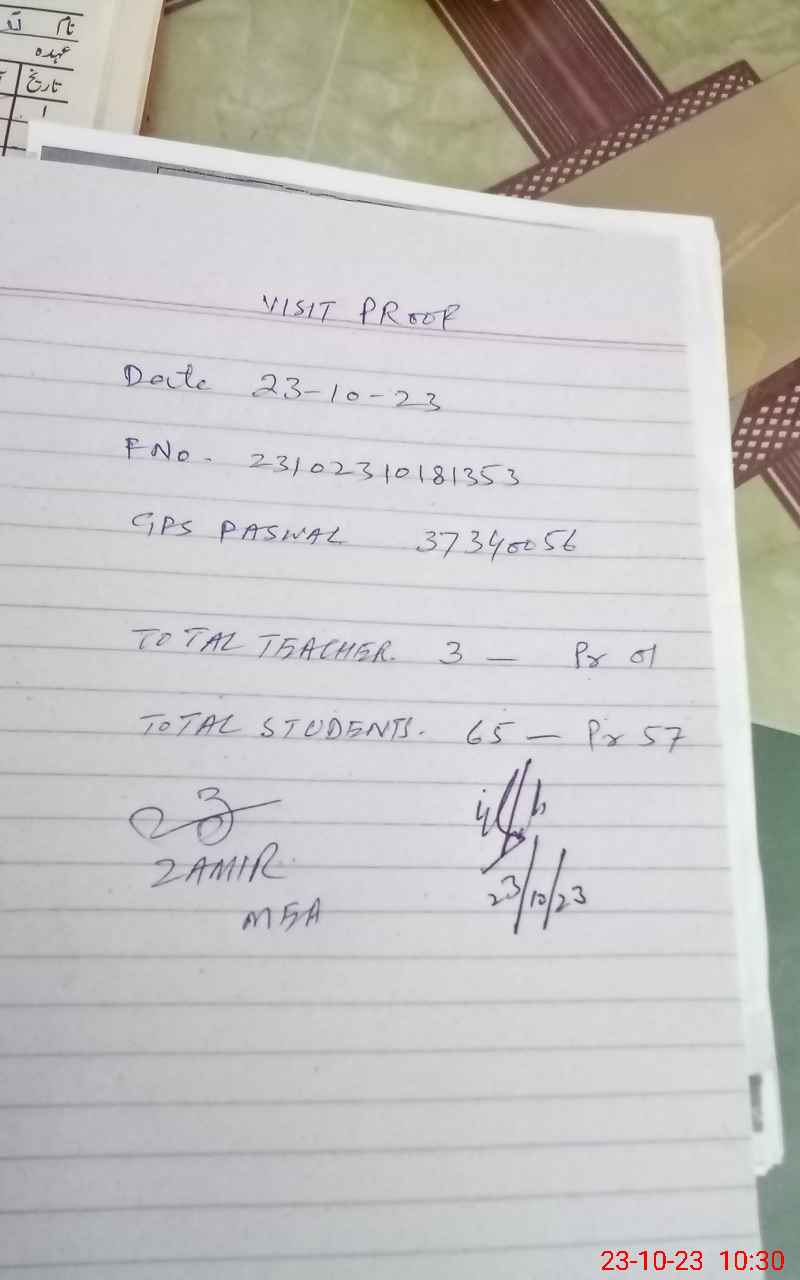 نام
عہدہ
تاریخ
VISIT PROOF
Date 23-10-23
F No. 23102310181353
GPS PASWAL 37340056
TOTAL TEACHER. 3 — Pr 01
TOTAL STUDENTS. 65 — Pr 57
ZAMIR
MEA
23/10/23
23-10-23 10:30